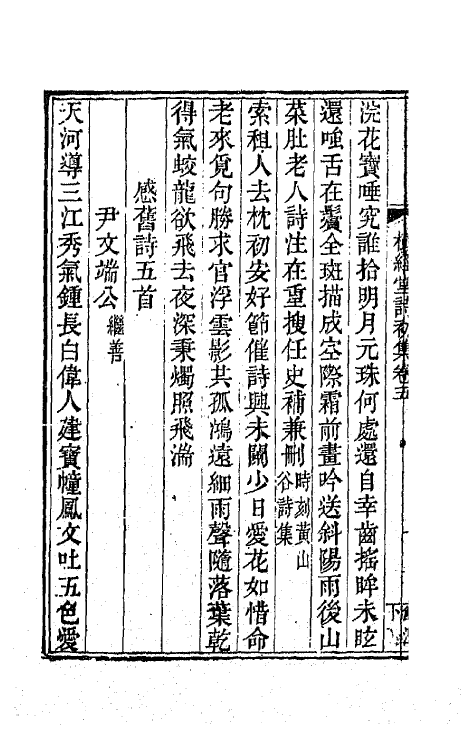 浣花寶唾究誰拾明月元珠何處還自幸齒搖眸未眩
還嗤舌在鬢全斑描成空際霜前畫吟送斜陽雨後山
菜肚老人詩注在重搜任史補兼刪時刻黃山谷詩集
索租人去枕初安好節催詩興未闌少日愛花如惜命
老來覓句勝求官浮雲影共孤鴻遠細雨聲隨落葉乾
得氣蛟龍欲飛去夜深秉燭照飛湍
感舊詩五首
尹文端公繼善
天河導三江秀氣鍾長白偉人建寶幢鳳文吐五色愛
經堂詩初集卷五
下